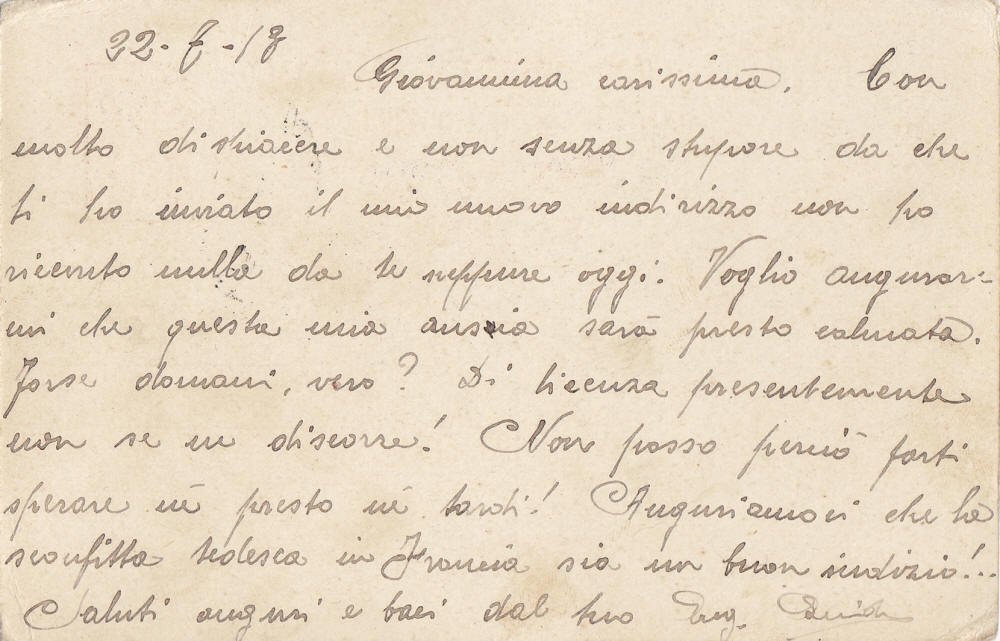 22-7-18
Giovannina carissima. Con
molto dispiacere e non senza stupore da che
ti ho inviato il mio nuovo indirizzo non ho
ricevuto nulla da te neppure oggi. Voglio augurar-
mi che questa mia ansia sarà presto calmata.
Forse domani, vero? Di licenza presentemente
non se ne discorre! Non posso perciò farti
sperare nè presto nè tardi! Auguriamoci che la
sconfitta tedesca in Francia sia un buon indizio!..
Saluti auguri e baci dal tuo Eug.